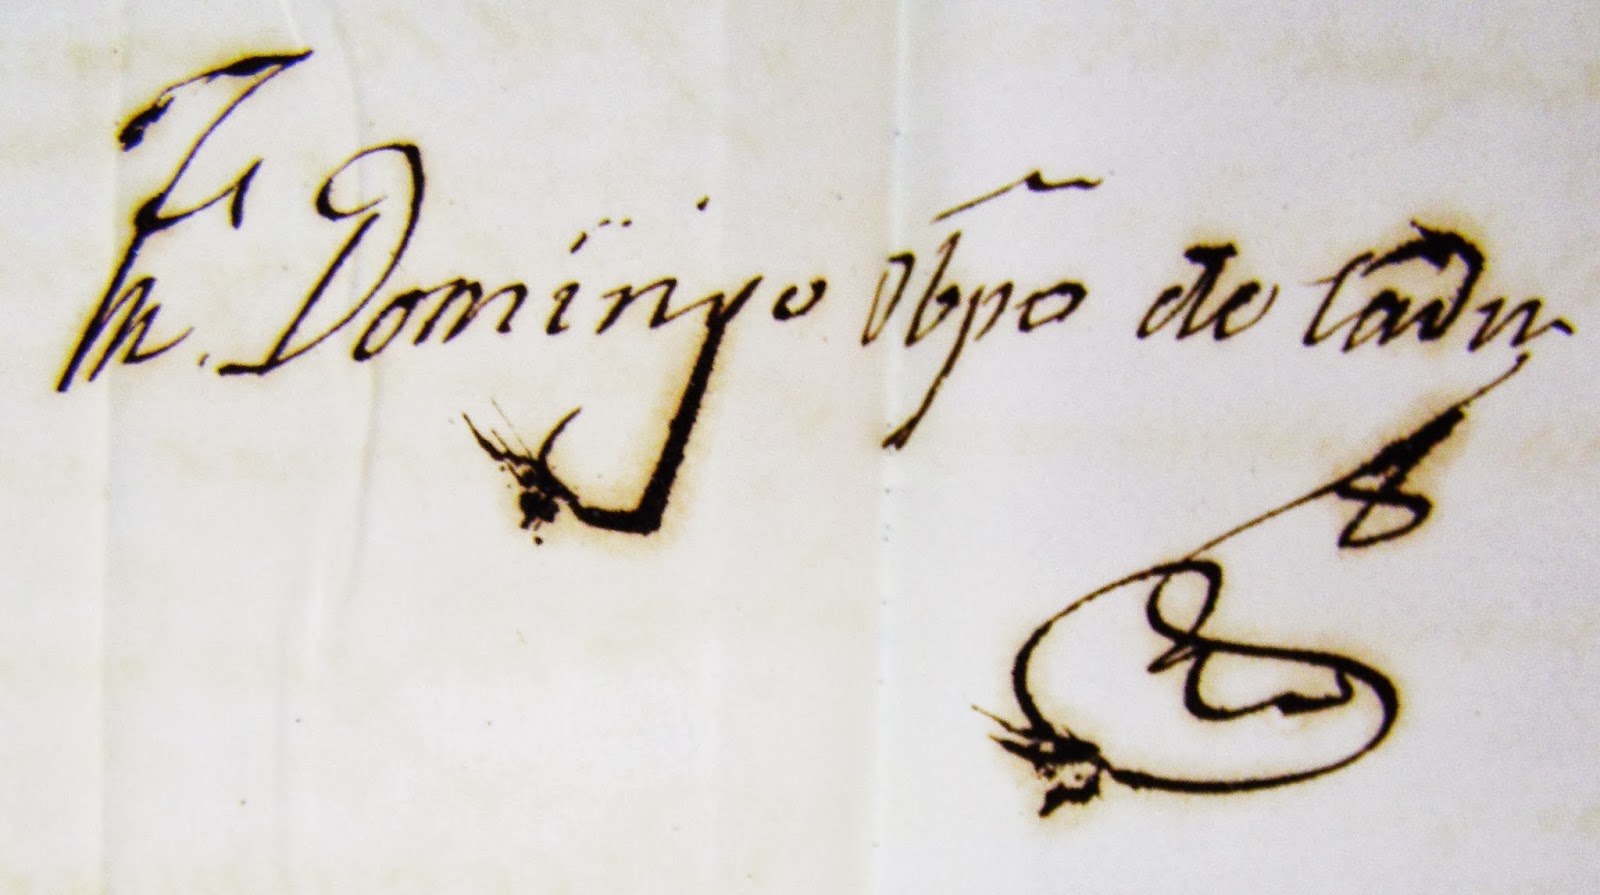 Fr m. Domingo Obpo de Cadiz